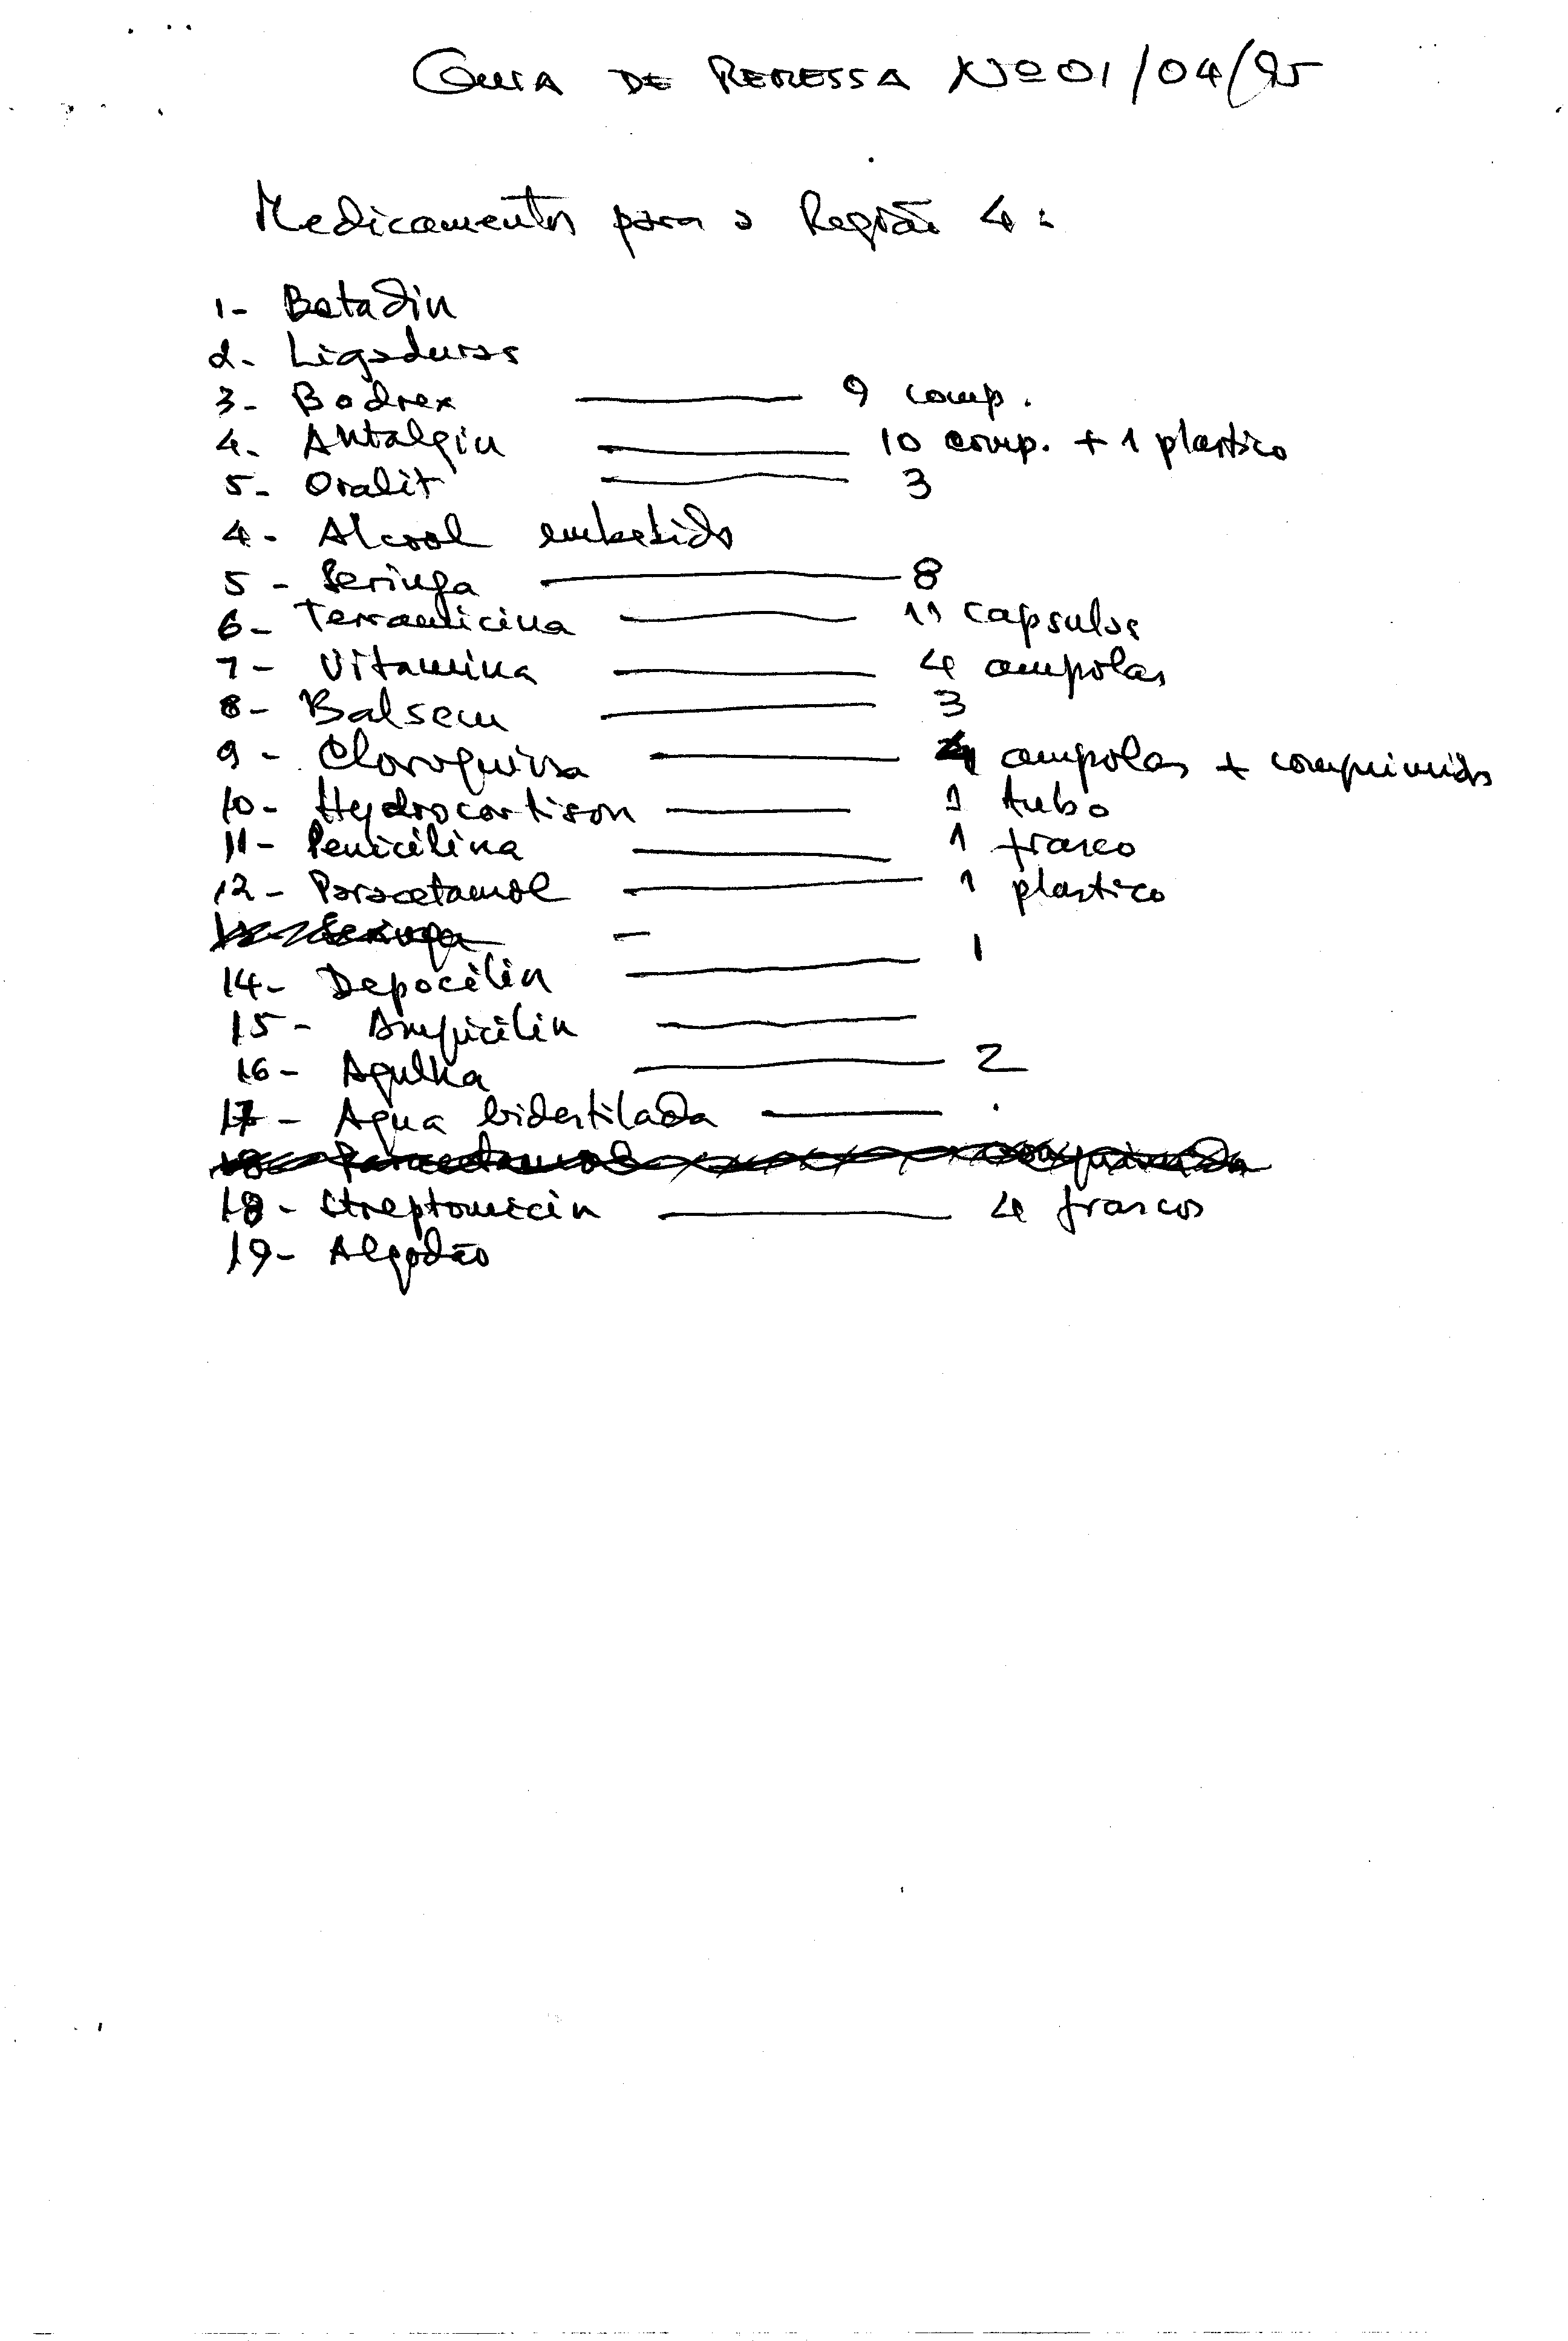 GUIA DE REMESSA Nº 01/04/95
Medicamentos para a Região 4:
1- Betadin
2- Ligaduras
3- Bodrex —— 9 comp.
4- Antalgin —— 10 comp. + 1 plastico
5- Oralit —— 3
4- Alcool embebido
5- Seringa —— 8
6- Terramicina —— 11 capsulas
7- Vitamina —— 4 ampolas
8- Balsem —— 3
9- Cloroquina —— 4 ampolas + comprimido
10- Hydrocortison —— 1 tubo
11- Penicilina —— 1 frasco
12- Paracetamol —— 1 plastico
Seringa –
14- Depocilin —— 1
15- Ampicilin ——
16- Agulha —— 2
17- Agua bidestilada ——
18- Paracetamol comprimido
18- Streptomicin —— 4 frascos
19- Algodão